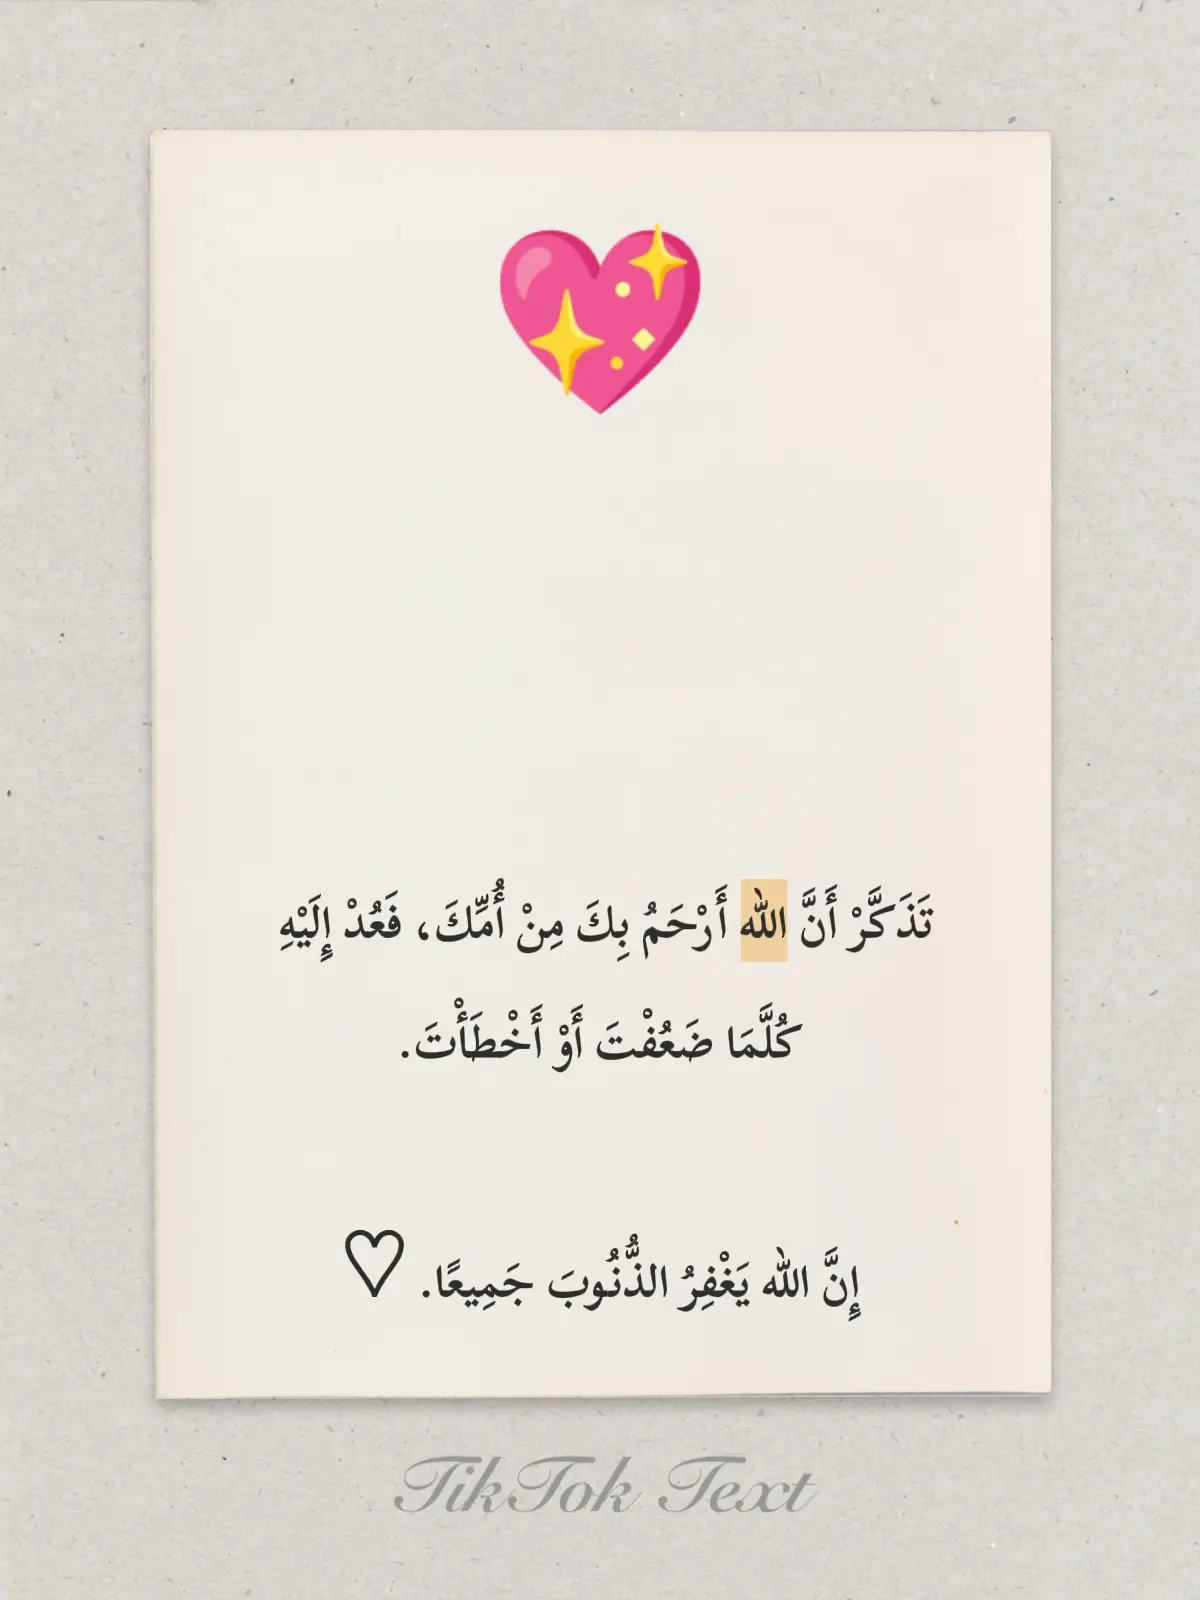 تَذَكَّرْ أَنَّ الله أَرْحَمُ بِكَ مِنْ أُمِّكَ، فَعُدْ إِلَيْهِ
كُلَّمَا ضَعُفْتَ أَوْ أَخْطَأْتَ.
إِنَّ الله يَغْفِرُ الذُّنُوبَ جَمِيعًا. ♡
TikTok Text